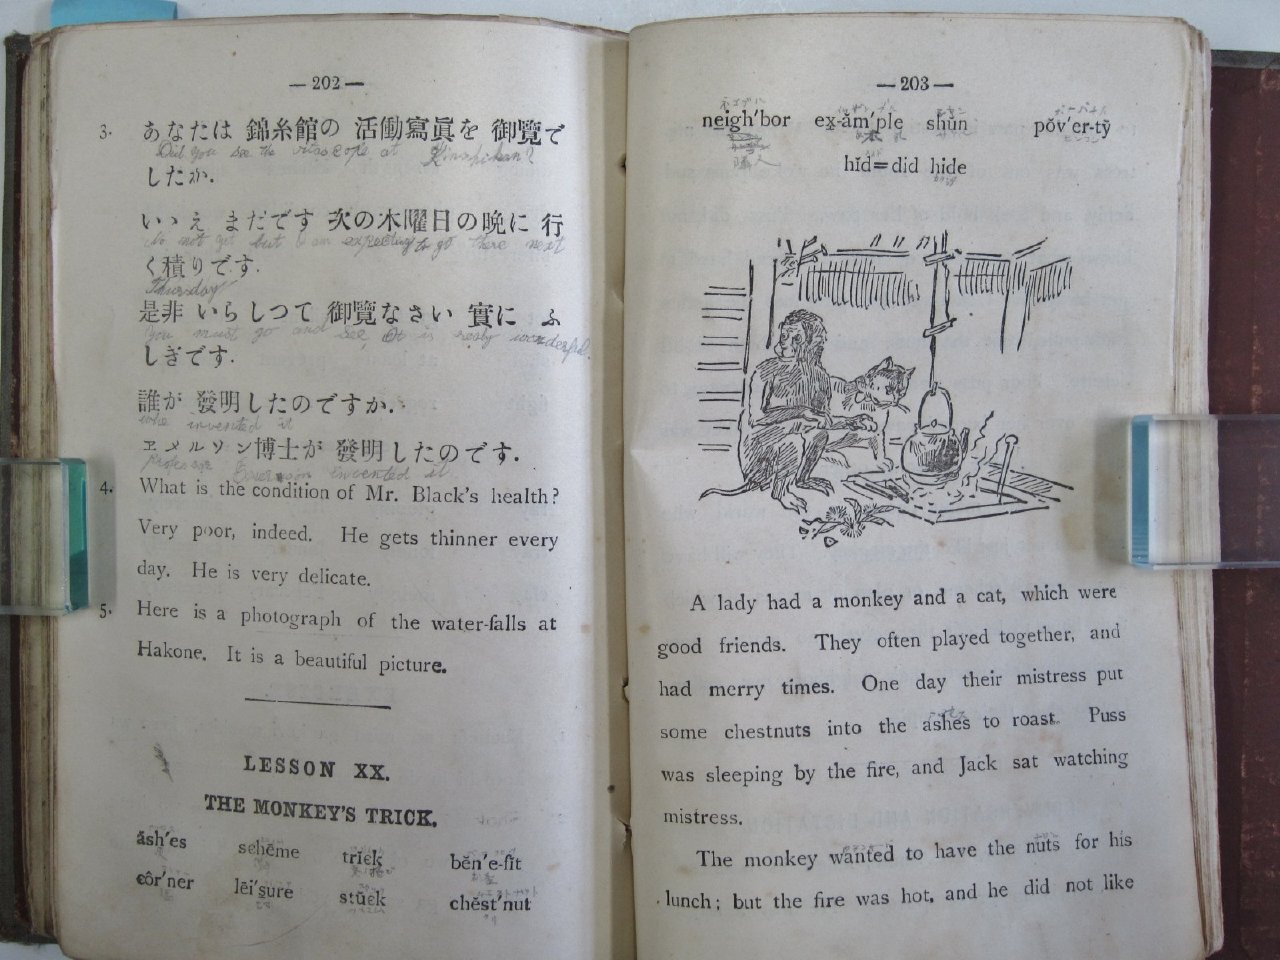 — 202 —
3. あなたは 錦糸館の 活働寫眞を 御覽で
Did you see the vitascope at Kinshikan?
したか.
いゝえ まだです 次の木曜日の晩に 行
No not yet but I am expecting to go there next
く積りです.
Thursday
是非 いらしつて 御覽なさい 實に ふ
You must go and see, it is realy wonderful.
しぎです.
誰が 發明したのですか.
who invented it
ヱメルソン博士が 發明したのです.
professor invented it
4. What is the condition of Mr. Black's health?
Very poor, indeed. He gets thinner every
day. He is very delicate.
5. Here is a photograph of the water-falls at
Hakone. It is a beautiful picture.
LESSON XX.
THE MONKEY'S TRICK.
ăsh'es schēme trick bĕn'e-fit
côr'ner lēi'şure stŭck chĕst'nut
— 203 —
neigh'bor ex-ăm'ple shŭn pŏv'er-tў
隣人
hĭd=did hide
A lady had a monkey and a cat, which were
good friends. They often played together, and
had merry times. One day their mistress put
some chestnuts into the ashes to roast. Puss
was sleeping by the fire, and Jack sat watching
mistress.
The monkey wanted to have the nuts for his
lunch; but the fire was hot, and he did not like